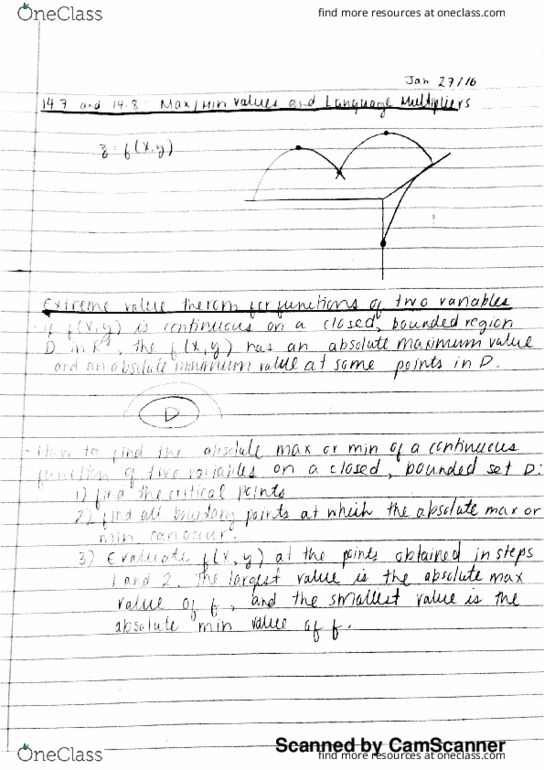 OneClass
find more resources at oneclass.com
Jan 27/16
14.7 and 14.8: Max/Min values and Language Multipliers
z = f(x,y)
Extreme value therom for functions of two variables
If f(x,y) is continuous on a closed, bounded region
D in R², the f(x,y) has an absolute maximum value
and an absolute minimum value at some points in D.
D
- How to find the absolute max or min of a continuous
function of two variables on a closed, bounded set D:
1) find the critical points
2) find all boundary points at which the absolute max or
min can occur.
3) Evaluate f(x,y) at the points obtained in steps
1 and 2. The largest value is the absolute max
value of f, and the smallest value is the
absolute min value of f.
Scanned by CamScanner
OneClass
find more resources at oneclass.com